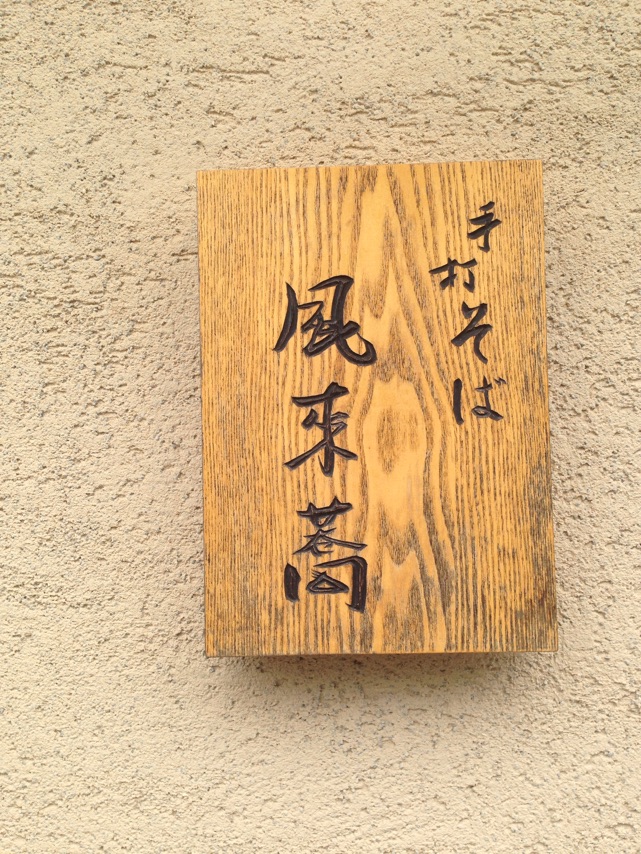 手打そば
風来蕎